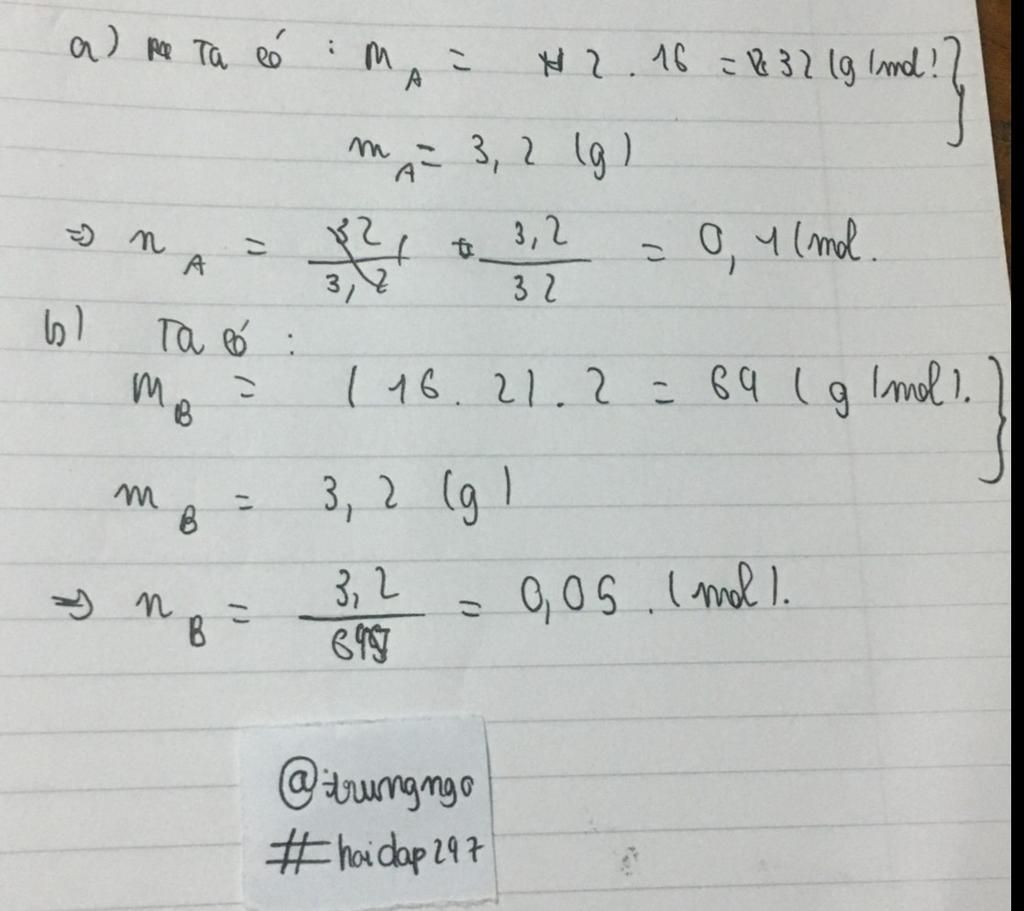 a) Ta có : M_A = 2 . 16 = 32 (g/mol)
m_A = 3,2 (g)
=> n_A = 32/3,2 3,2/32 = 0,1 (mol.
b) Ta có :
M_B = (16 . 2) . 2 = 64 (g/mol).
m_B = 3,2 (g)
=> n_B = 3,2/64 = 0,05 . (mol).
@itrungngo
#hoidap247